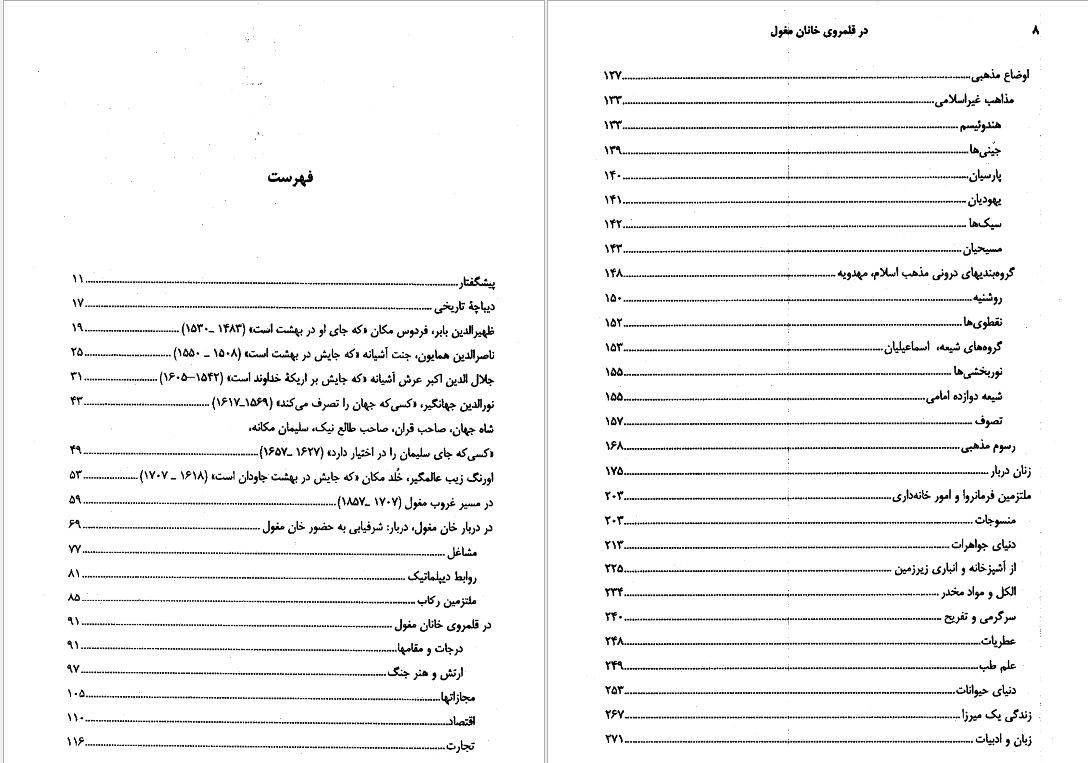 فهرست
پیشگفتار ... ۱۱
دیباچهٔ تاریخی ... ۱۷
ظهیرالدین بابر، فردوس مکان «که جای او در بهشت است» (۱۴۸۳ ـ۱۵۳۰) ... ۱۹
ناصرالدین همایون، جنت آشیانه «که جایش در بهشت است» (۱۵۰۸ ـ ۱۵۵۰) ... ۲۵
جلال الدین اکبر عرش آشیانه «که جایش بر اریکهٔ خداوند است» (۱۵۴۲–۱۶۰۵) ... ۳۱
نورالدین جهانگیر، «کسی‌که جهان را تصرف می‌کند» (۱۵۶۹ـ۱۶۱۷) ... ۴۳
شاه جهان، صاحب قران، صاحب طالع نیک، سلیمان مکانه،
«کسی‌که جای سلیمان را در اختیار دارد» (۱۶۲۷ ـ۱۶۵۷) ... ۴۹
اورنگ زیب عالمگیر، خُلد مکان «که جایش در بهشت جاودان است» (۱۶۱۸ ـ ۱۷۰۷) ... ۵۳
در مسیر غروب مغول (۱۷۰۷ ـ۱۸۵۷) ... ۵۹
در دربار خان مغول، دربار: شرفیابی به حضور خان مغول ... ۶۹
مشاغل ... ۷۷
روابط دیپلماتیک ... ۸۱
ملتزمین رکاب ... ۸۵
در قلمروی خانان مغول ... ۹۱
درجات و مقامها ... ۹۱
ارتش و هنر جنگ ... ۹۷
مجازاتها ... ۱۰۵
اقتصاد ... ۱۱۰
تجارت ... ۱۱۶
۸ در قلمروی خانان مغول
اوضاع مذهبی ... ۱۲۷
مذاهب غیراسلامی ... ۱۳۳
هندوئیسم ... ۱۳۳
جیْنی‌ها ... ۱۳۹
پارسیان ... ۱۴۰
یهودیان ... ۱۴۱
سیک‌ها ... ۱۴۲
مسیحیان ... ۱۴۳
گروه‌بندیهای درونی مذهب اسلام، مهدویه ... ۱۴۸
روشنیه ... ۱۵۰
نقطوی‌ها ... ۱۵۲
گروه‌های شیعه، اسماعیلیان ... ۱۵۳
نوربخشی‌ها ... ۱۵۵
شیعه دوازده امامی ... ۱۵۵
تصوف ... ۱۵۷
رسوم مذهبی ... ۱۶۸
زنان دربار ... ۱۷۵
ملتزمین فرمانروا و امور خانه‌داری ... ۲۰۳
منسوجات ... ۲۰۳
دنیای جواهرات ... ۲۱۳
از آشپزخانه و انباری زیرزمین ... ۲۲۵
الکل و مواد مخدر ... ۲۳۴
سرگرمی و تفریح ... ۲۴۰
عطریات ... ۲۴۸
علم طب ... ۲۴۹
دنیای حیوانات ... ۲۵۳
زندگی یک میرزا ... ۲۶۷
زبان و ادبیات ... ۲۷۱